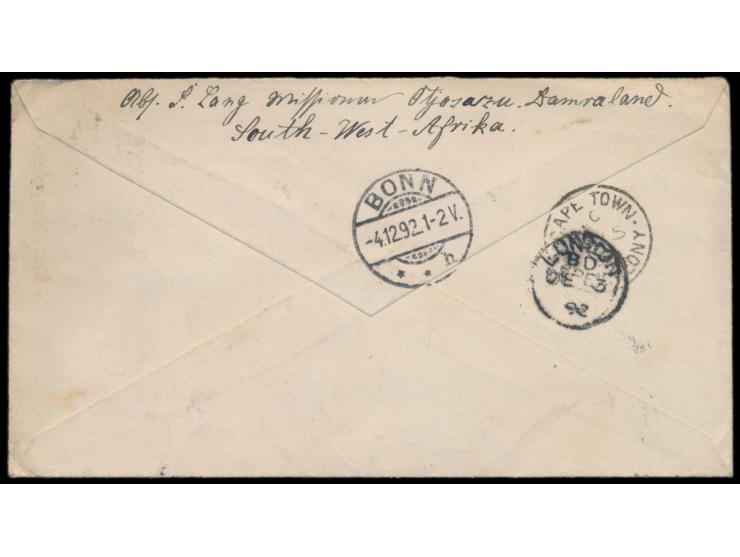 Abs. P. Lang Missionar Otjosazu. Damraland.
South-West-Afrika.
BONN
-4.12.92.1-2 V.
* * h
CAPE TOWN·
ONY·
C
5
LONDON
BD
DE 3
92